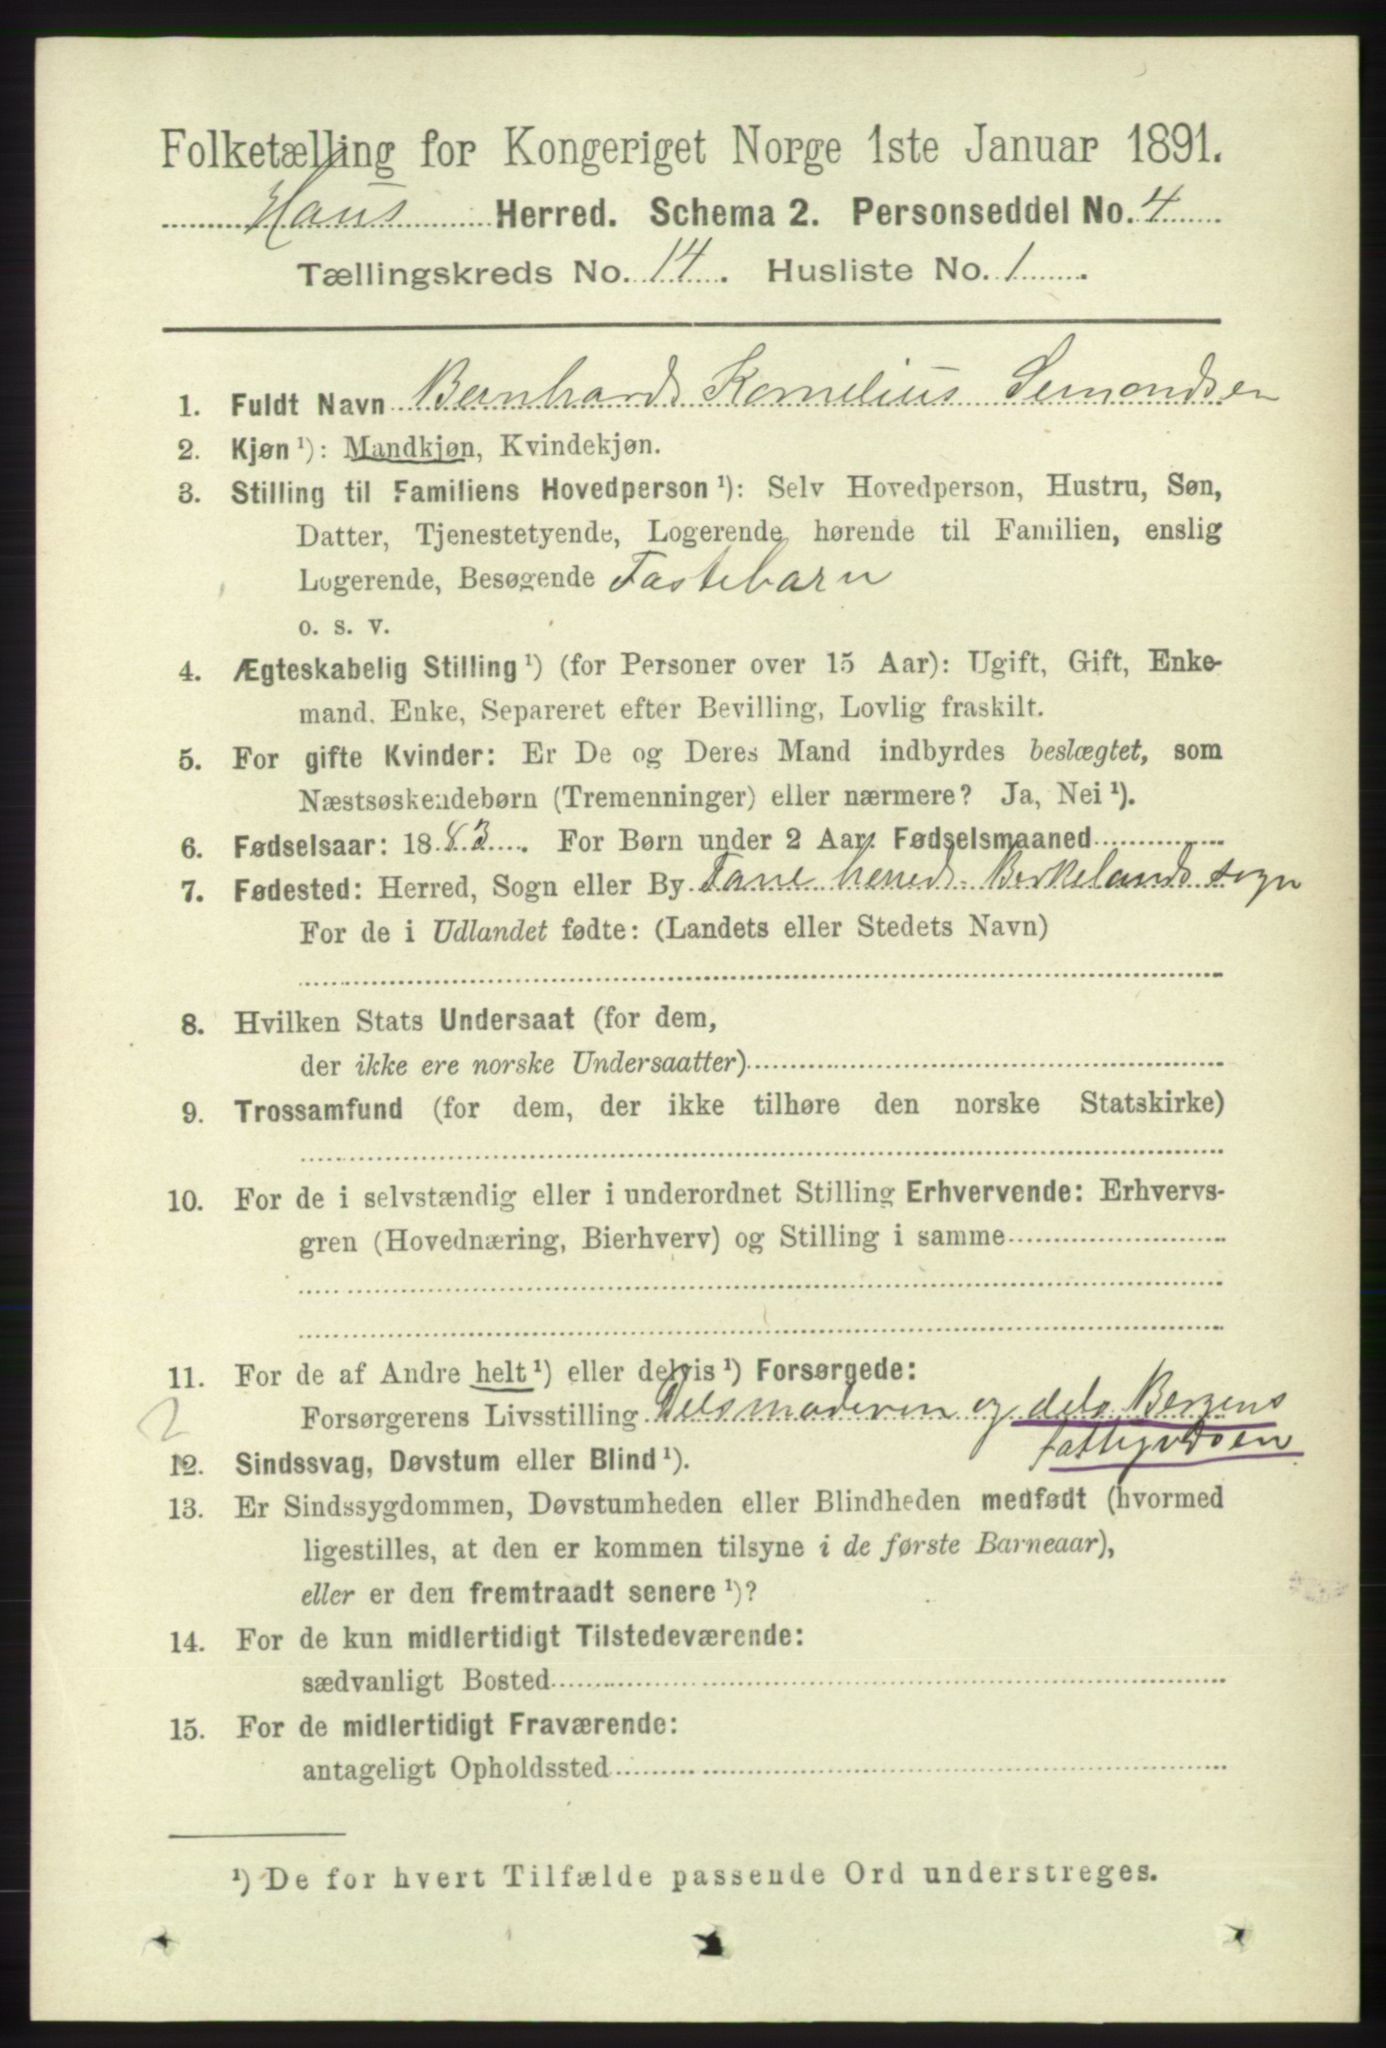 Folketælling for Kongeriget Norge 1ste Januar 1891.
Haus Herred. Schema 2. Personseddel No. 4
Tællingskreds No. 14. Husliste No. 1.
1. Fuldt Navn Bernhard Kornelius Semondsen
2. Kjøn ¹): Mandkjøn, Kvindekjøn.
3. Stilling til Familiens Hovedperson ¹): Selv Hovedperson, Hustru, Søn,
Datter, Tjenestetyende, Logerende hørende til Familien, enslig
Logerende, Besøgende Fostebarn
o. s. v.
4. Ægteskabelig Stilling ¹) (for Personer over 15 Aar): Ugift, Gift, Enke-
mand. Enke, Separeret efter Bevilling, Lovlig fraskilt.
5. For gifte Kvinder: Er De og Deres Mand indbyrdes beslægtet, som
Næstsøskendebørn (Tremenninger) eller nærmere? Ja, Nei ¹).
6. Fødselsaar: 1883. For Børn under 2 Aar: Fødselsmaaned
7. Fødested: Herred, Sogn eller By Fane herred Birkelands sogn
For de i Udlandet fødte: (Landets eller Stedets Navn)
8. Hvilken Stats Undersaat (for dem,
der ikke ere norske Undersaatter)
9. Trossamfund (for dem, der ikke tilhøre den norske Statskirke)
10. For de i selvstændig eller i underordnet Stilling Erhvervende: Erhvervs-
gren (Hovednæring, Bierhverv) og Stilling i samme
11. For de af Andre helt ¹) eller delvis ¹) Forsørgede:
2 Forsørgerens Livsstilling Dels moderen og dels Bergens
fattigvæsen
12. Sindssvag, Døvstum eller Blind ¹).
13. Er Sindssygdommen, Døvstumheden eller Blindheden medfødt (hvormed
ligestilles, at den er kommen tilsyne i de første Barneaar),
eller er den fremtraadt senere ¹)?
14. For de kun midlertidigt Tilstedeværende:
sædvanligt Bosted
15. For de midlertidigt Fraværende:
antageligt Opholdssted
¹) De for hvert Tilfælde passende Ord understreges.